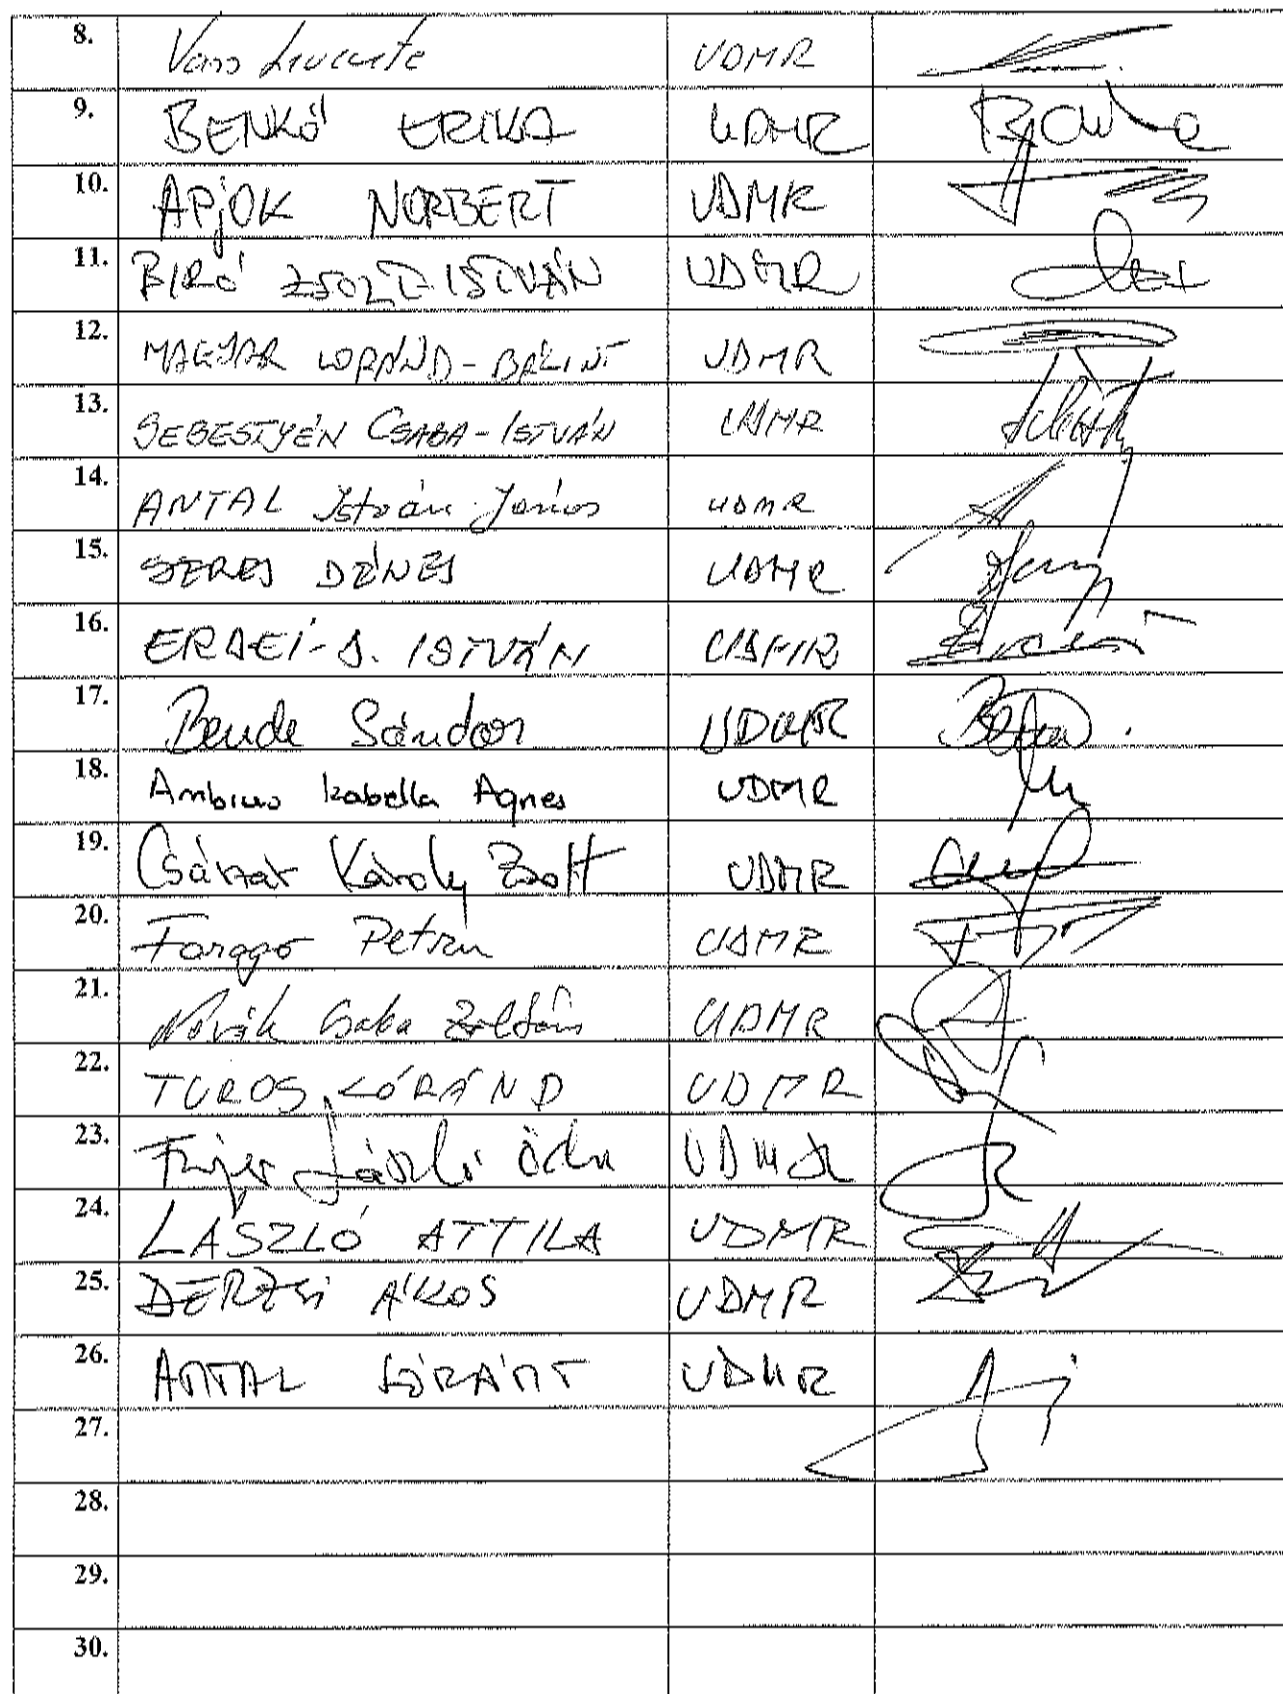 8. Vass Levente UDMR
9. BENKŐ ERIKA UDMR
10. APJOK NORBERT UDMR
11. BIRÓ ZSOLT-ISTVÁN UDMR
12. MAGYAR LORÁND-BÁLINT UDMR
13. SEBESTYÉN CSABA-ISTVÁN UDMR
14. ANTAL István-János UDMR
15. SERES DÉNES UDMR
16. ERDEI-D. ISTVÁN UDMR
17. Bende Sándor UDMR
18. Ambrus Izabella Agnes UDMR
19. Császár Károly Zsolt UDMR
20. Faragó Petru UDMR
21. Novák Csaba Zoltán UDMR
22. TUROS LÓRÁND UDMR
23. Fejér László Ödön UDMR
24. LÁSZLÓ ATTILA UDMR
25. DERZSI ÁKOS UDMR
26. ANTAL LÓRÁNT UDMR
27.
28.
29.
30.